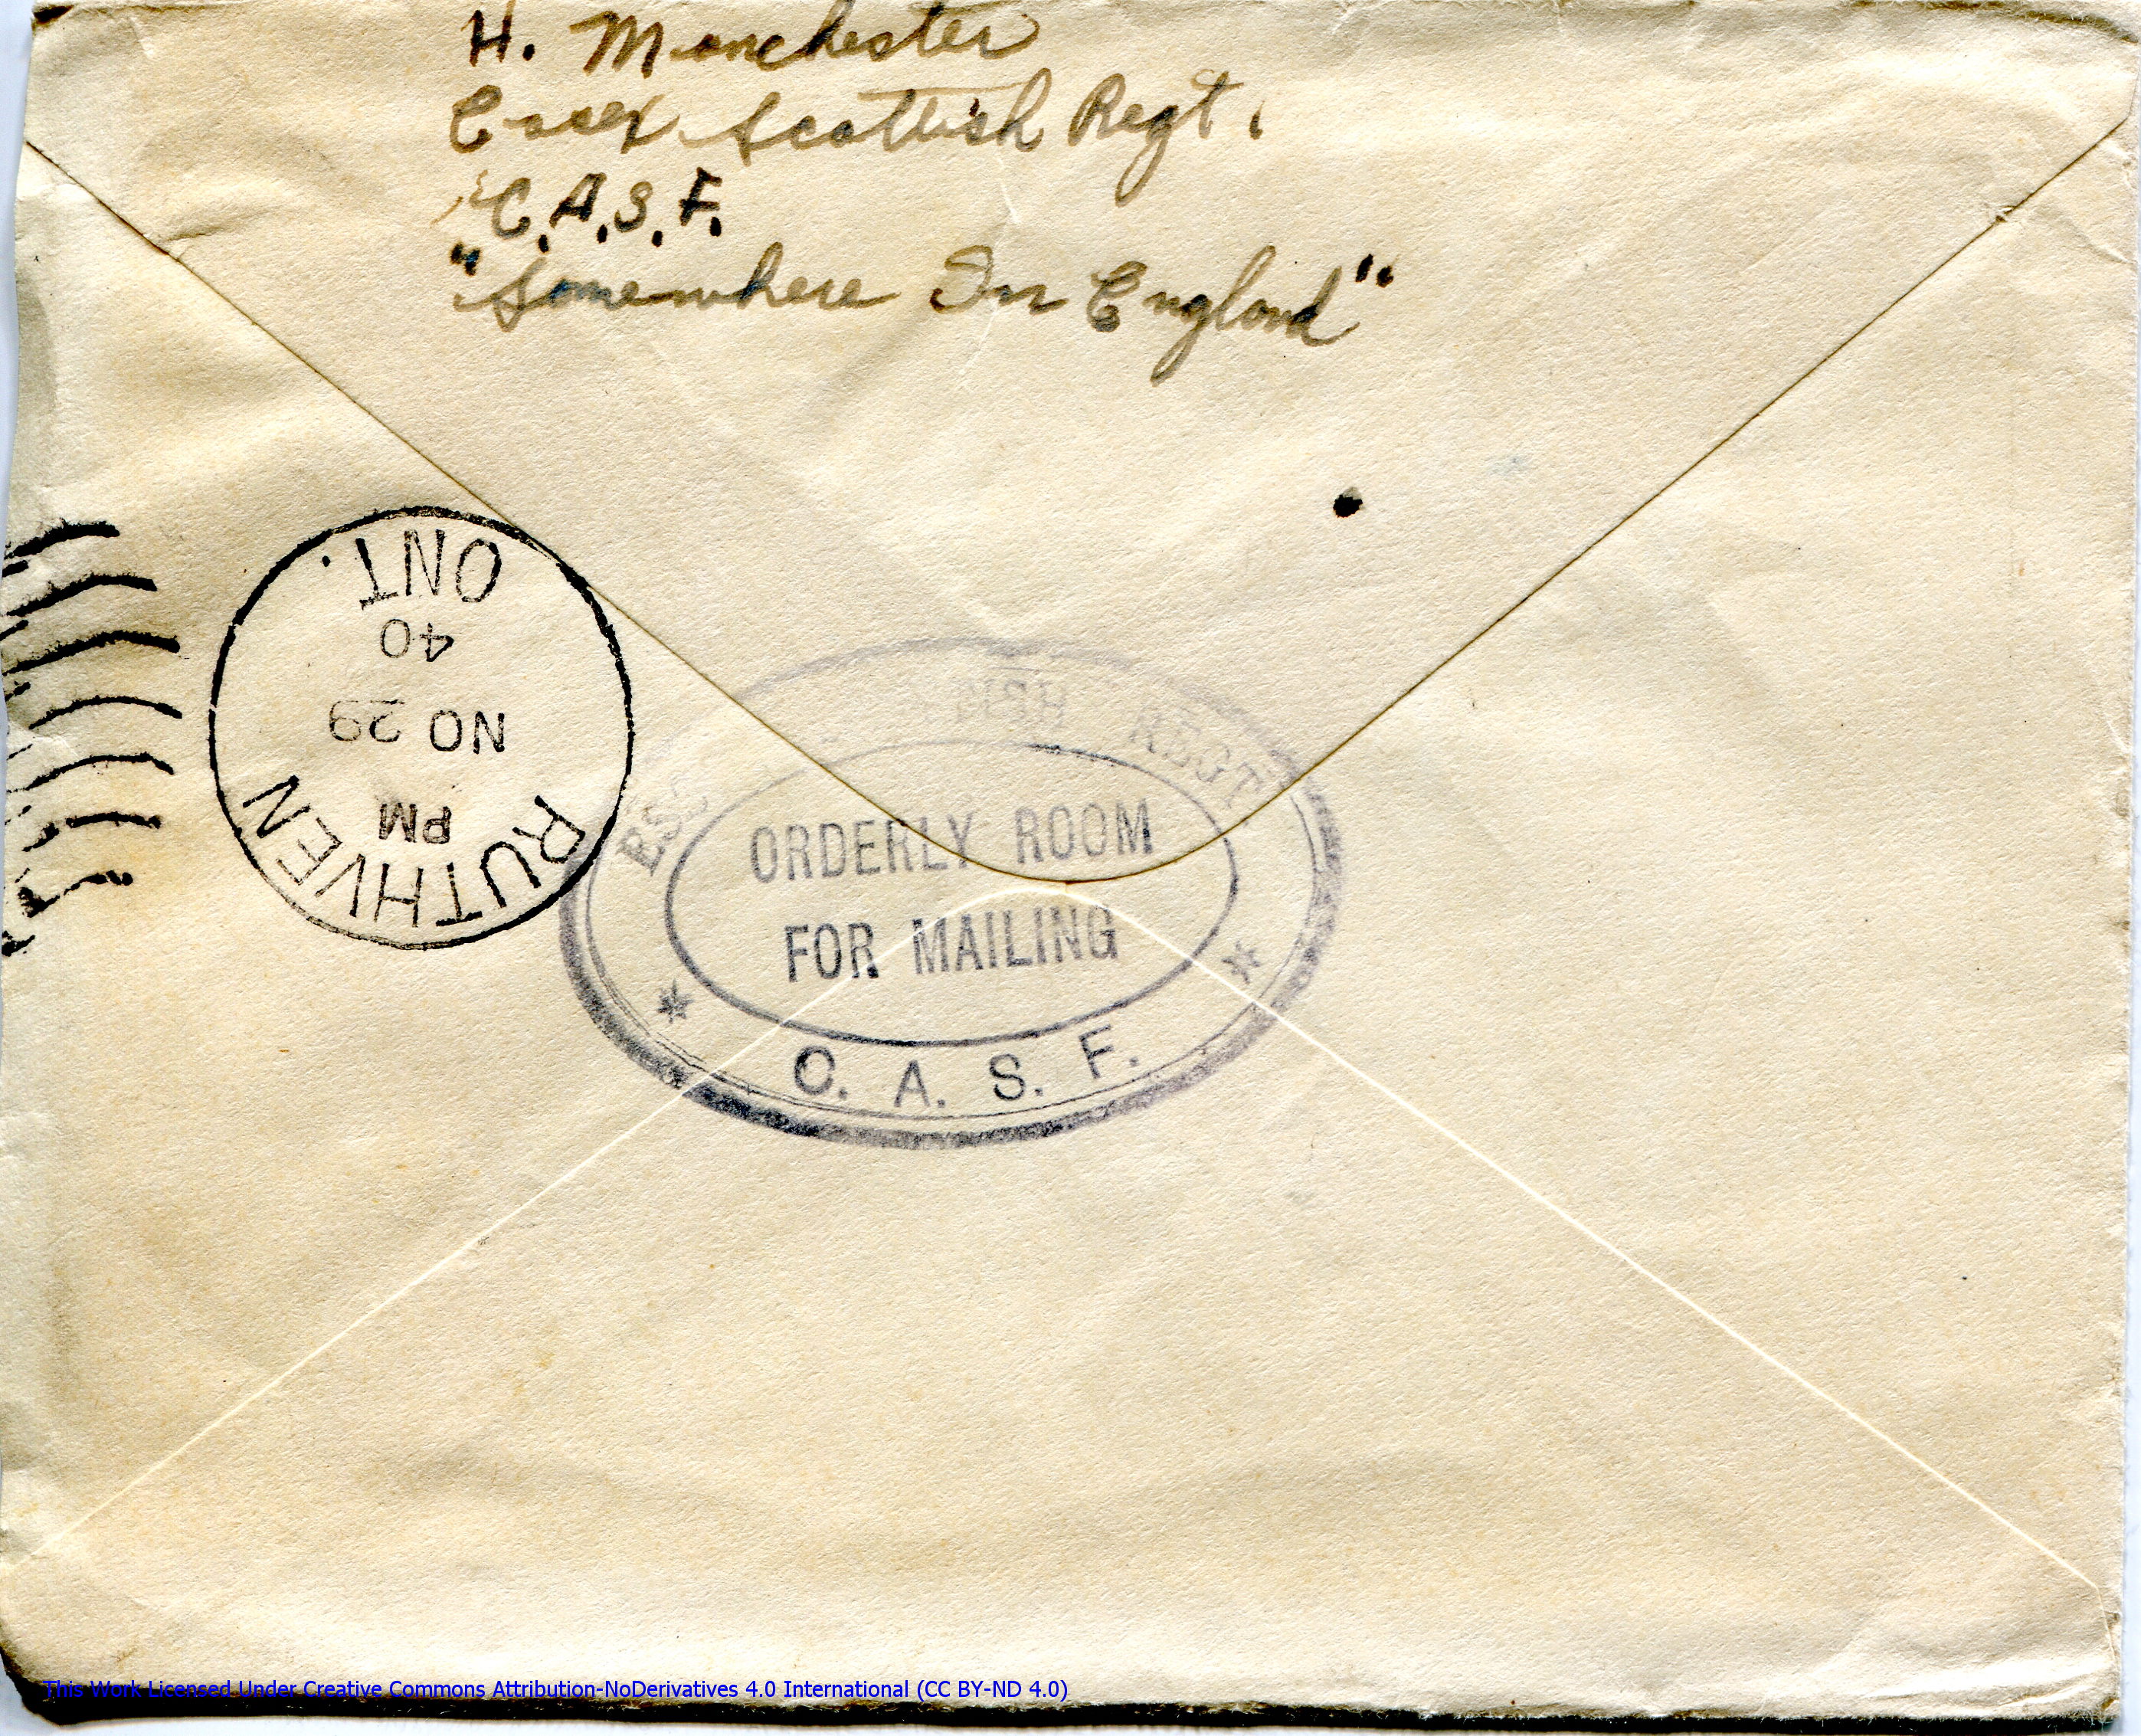 H. Manchester
Essex Scottish Regt.
C.A.S.F.
"Somewhere In England"
RUTHVEN
PM
NO 29
40
ONT.
REGT
ORDERLY ROOM
FOR MAILING
C. A. S. F.
This Work Licensed Under Creative Commons Attribution-NoDerivatives 4.0 International (CC BY-ND 4.0)